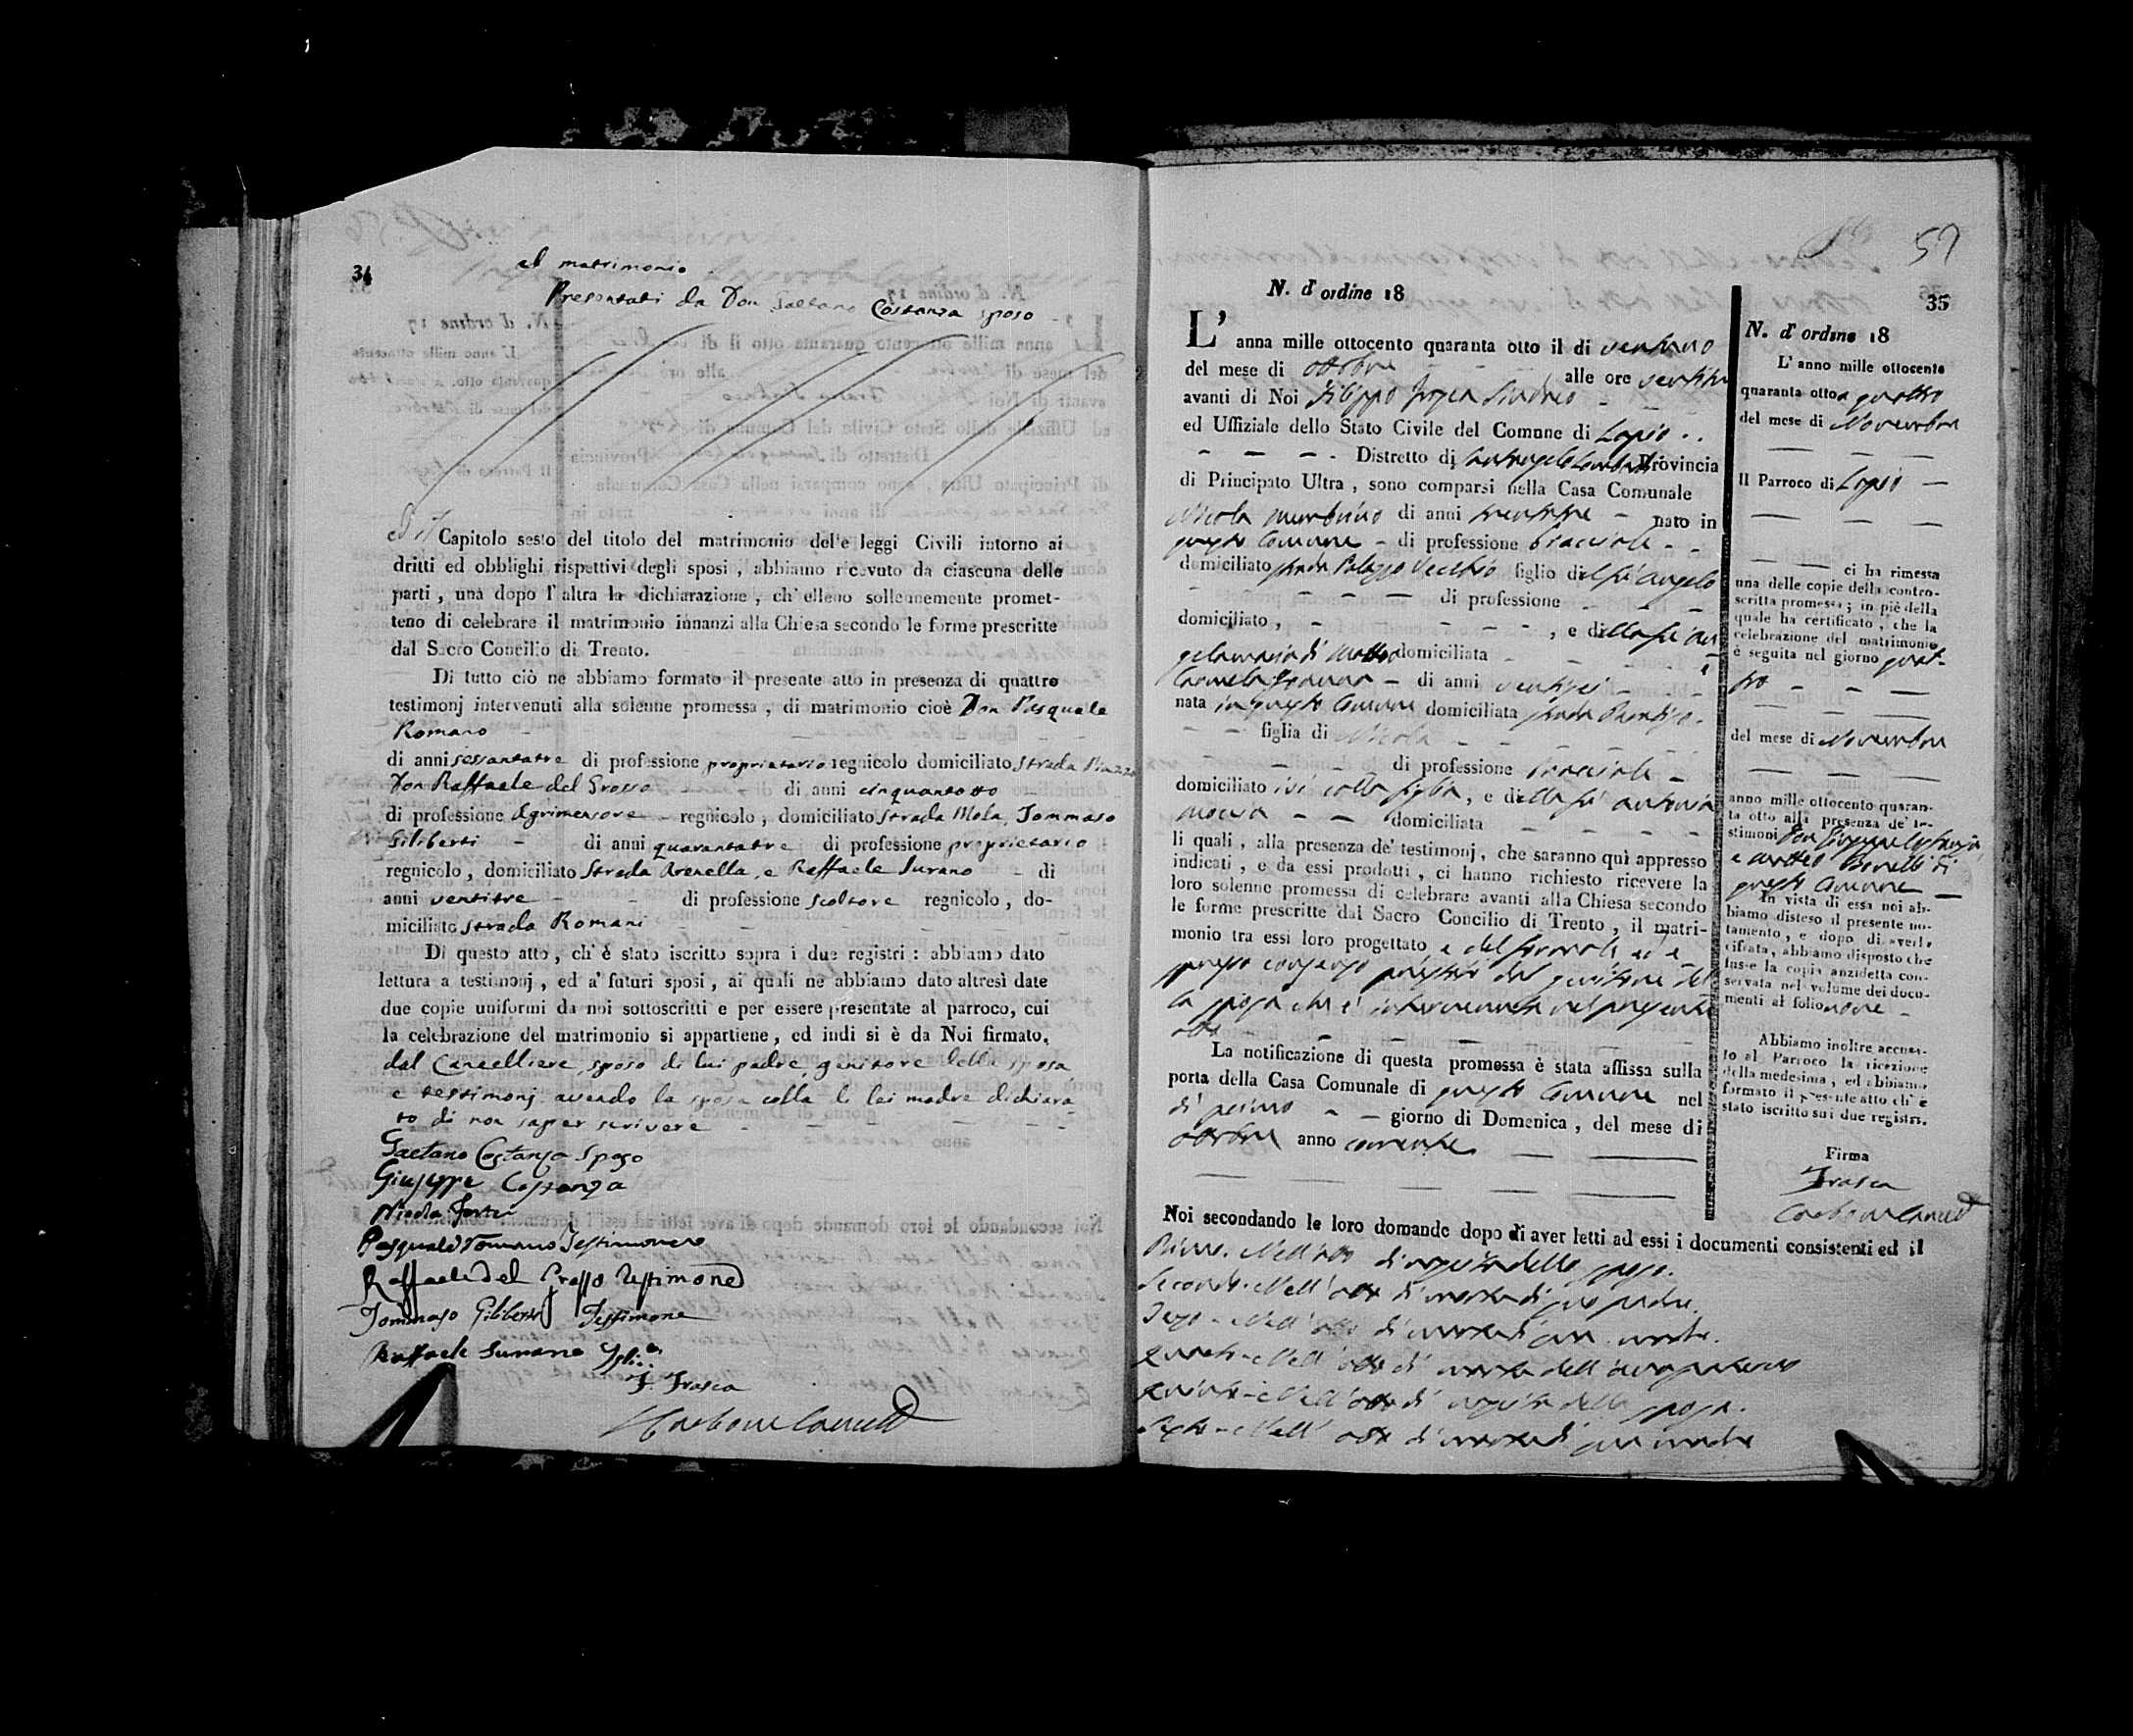 34
al matrimonio
Presentati da Don Gaetano Costanza sposo
Ed il Capitolo sesto del titolo del matrimonio delle leggi Civili intorno ai
dritti ed obblighi rispettivi degli sposi, abbiamo ricevuto da ciascuna delle
parti, una dopo l'altra la dichiarazione, ch'elleno sollennemente promet-
teno di celebrare il matrimonio innanzi alla Chiesa secondo le forme prescritte
dal Sacro Concilio di Trento.
Di tutto ciò ne abbiamo formato il presente atto in presenza di quattro
testimonj intervenuti alla solenne promessa, di matrimonio cioè Don Pasquale
Romano
di anni sessantatre di professione proprietario regnicolo domiciliato strada Piazza
Don Raffaele del Grosso di anni cinquantotto
di professione Agrimensore regnicolo, domiciliato strada Mola, Tommaso
Giliberti - di anni quarantatre di professione proprietario
regnicolo, domiciliato Strada Arenella, e Raffaele Surano - di
anni ventitre - - di professione scoltore regnicolo, do-
miciliato strada Romani
Di questo atto, ch'è stato iscritto sopra i due registri: abbiamo dato
lettura a testimonj, ed a' futuri sposi, ai quali ne abbiamo dato altresì date
due copie uniformi da noi sottoscritti e per essere presentate al parroco, cui
la celebrazione del matrimonio si appartiene, ed indi si è da Noi firmato,
dal Cancelliere, sposo di lui padre, genitore della sposa
e testimonj avendo la sposa colla di lei madre dichiara
to di non saper scrivere
Gaetano Costanza Sposo
Giuseppe Costanza
Nicola
Pasquale Romano Testimone
Raffaele Del Grosso Testimone
Tommaso Giliberti Testimone
Raffaele Surano
F. Frasca
Carbone Cancell
59
35
N. d'ordine 18
L'anna mille ottocento quaranta otto il di ventuno
del mese di ottobre - - - alle ore ventitre
avanti di Noi Filippo Frasca Sindaco - -
ed Uffiziale dello Stato Civile del Comune di Lapio . .
- - - - Distretto di Santangelo Lombardi Provincia
di Principato Ultra, sono comparsi nella Casa Comunale
Nicola di anni trentatre - nato in
questo Comune - di professione bracciale - -
domiciliato strada Palazzo Vecchio figlio del fu Angelo
- - - - di professione - - -
domiciliato, - - - -, e della fu An
gelamaria di domiciliata - - -
Carmela - di anni ventisei - -
nata in questo Comune domiciliata strada
- - figlia di Nicola - - -
- - di professione bracciale -
domiciliato ivi colla figlia, e della fu Antonia
- - domiciliata - - - -
li quali, alla presenza de' testimonj, che saranno quì appresso
indicati, e da essi prodotti, ci hanno richiesto ricevere la
loro solenne promessa di celebrare avanti alla Chiesa secondo
le forme prescritte dal Sacro Concilio di Trento, il matri-
monio tra essi loro progettato e del formale ed e
spresso consenso prestato dal genitore del
la sposa che è intervenuto nel presente
atto - - - -
La notificazione di questa promessa è stata affissa sulla
porta della Casa Comunale di questo Comune nel
di primo - - giorno di Domenica, del mese di
ottobre anno corrente
Noi secondando le loro domande dopo di aver letti ad essi i documenti consistenti ed il
Primo. Nell'atto di nascita dello sposo.
Secondo. Nell'atto di morte di suo padre.
Terzo - Nell'atto di morte di sua madre.
Quarto - Nell'atto di morte dell'avo paterno
Quinto - Nell'atto di nascita della sposa.
Sesto - Nell'atto di morte di sua madre
N. d'ordine 18
L'anno mille ottocento
quaranta otto a quattro
del mese di Novembre
Il Parroco di Lapio
ci ha rimessa
una delle copie della contro-
scritta promessa; in piè della
quale ha certificato, che la
celebrazione del matrimonio
è seguita nel giorno quat-
tro
del mese di Novembre
anno mille ottocento quaran-
ta otto alla presenza de' te-
stimoni Don Giuseppe Costanza
e Matteo di
questo Comune
In vista di essa noi ab-
biamo disteso il presente no-
tamento, e dopo di averla
cifrata, abbiamo disposto che
fusse la copia anzidetta con-
servata nel volume dei docu-
menti al folio nove -
Abbiamo inoltre accusa-
to al Parroco la ricezione
della medesima, ed abbiamo
formato il presente atto ch'è
stato iscritto sui due registri.
Firma
Frasca
Carbone Cancell